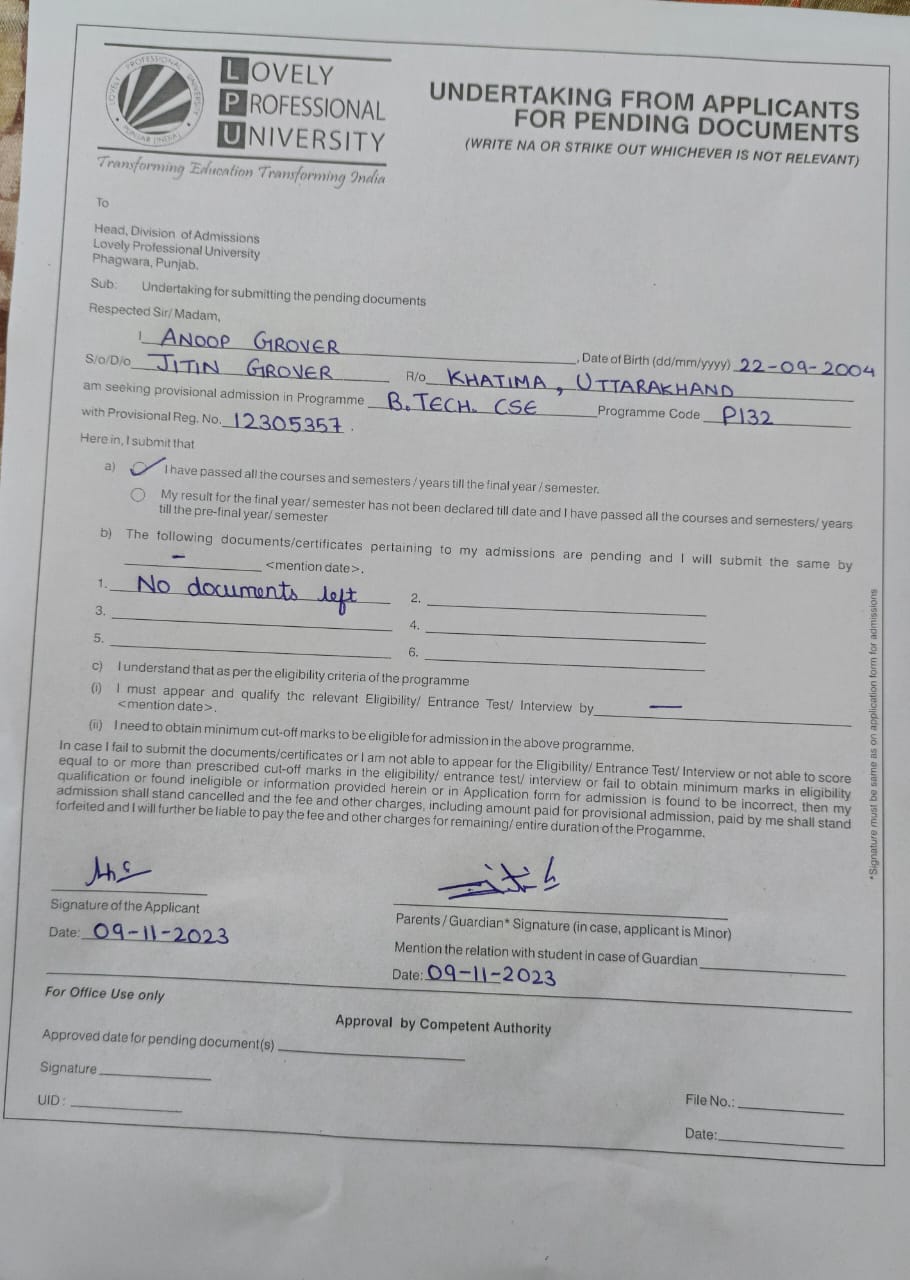 LOVELY
PROFESSIONAL
UNIVERSITY
Transforming Education Transforming India
LOVELY PROFESSIONAL UNIVERSITY
PUNJAB (INDIA)
UNDERTAKING FROM APPLICANTS
FOR PENDING DOCUMENTS
(WRITE NA OR STRIKE OUT WHICHEVER IS NOT RELEVANT)
To
Head, Division of Admissions
Lovely Professional University
Phagwara, Punjab.
Sub: Undertaking for submitting the pending documents
Respected Sir/ Madam,
I ANOOP GROVER, Date of Birth (dd/mm/yyyy) 22-09-2004
S/o/D/o JITIN GROVER R/o KHATIMA, UTTARAKHAND
am seeking provisional admission in Programme B.TECH. CSE Programme Code P132
with Provisional Reg. No. 12305357.
Here in, I submit that
a) I have passed all the courses and semesters / years till the final year / semester.
My result for the final year/ semester has not been declared till date and I have passed all the courses and semesters/ years
till the pre-final year/ semester
b) The following documents/certificates pertaining to my admissions are pending and I will submit the same by
– <mention date>.
1. No documents left 2.
3. 4.
5. 6.
c) I understand that as per the eligibility criteria of the programme
(i) I must appear and qualify the relevant Eligibility/ Entrance Test/ Interview by —
<mention date>.
(ii) I need to obtain minimum cut-off marks to be eligible for admission in the above programme.
In case I fail to submit the documents/certificates or I am not able to appear for the Eligibility/ Entrance Test/ Interview or not able to score
equal to or more than prescribed cut-off marks in the eligibility/ entrance test/ interview or fail to obtain minimum marks in eligibility
qualification or found ineligible or information provided herein or in Application form for admission is found to be incorrect, then my
admission shall stand cancelled and the fee and other charges, including amount paid for provisional admission, paid by me shall stand
forfeited and I will further be liable to pay the fee and other charges for remaining/ entire duration of the Progamme.
*Signature must be same as on application form for admissions
Signature of the Applicant
Parents / Guardian* Signature (in case, applicant is Minor)
Date: 09-11-2023
Mention the relation with student in case of Guardian
Date: 09-11-2023
For Office Use only
Approval by Competent Authority
Approved date for pending document(s)
Signature
UID :
File No.:
Date: